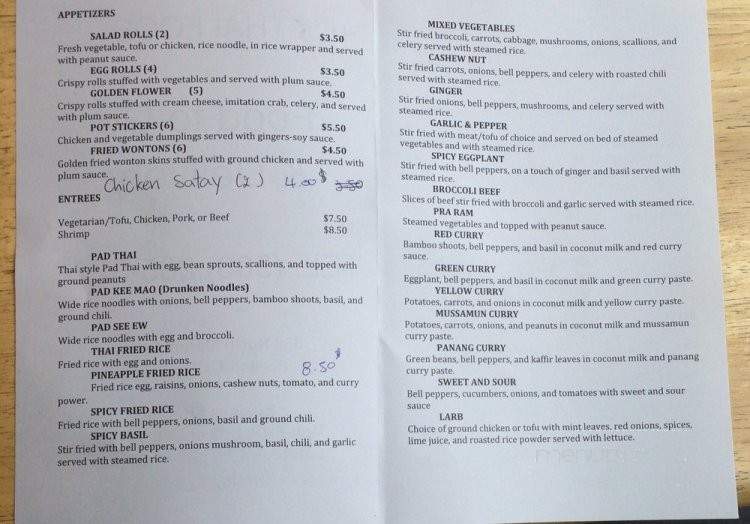 APPETIZERS
SALAD ROLLS (2) $3.50
Fresh vegetable, tofu or chicken, rice noodle, in rice wrapper and served
with peanut sauce.
EGG ROLLS (4) $3.50
Crispy rolls stuffed with vegetables and served with plum sauce.
GOLDEN FLOWER (5) $4.50
Crispy rolls stuffed with cream cheese, imitation crab, celery, and served
with plum sauce.
POT STICKERS (6) $5.50
Chicken and vegetable dumplings served with gingers-soy sauce.
FRIED WONTONS (6) $4.50
Golden fried wonton skins stuffed with ground chicken and served with
plum sauce.
Chicken Satay (2) 4.00$ 3.50
ENTREES
Vegetarian/Tofu, Chicken, Pork, or Beef $7.50
Shrimp $8.50
PAD THAI
Thai style Pad Thai with egg, bean sprouts, scallions, and topped with
ground peanuts
PAD KEE MAO (Drunken Noodles)
Wide rice noodles with onions, bell peppers, bamboo shoots, basil, and
ground chili.
PAD SEE EW
Wide rice noodles with egg and broccoli.
THAI FRIED RICE
Fried rice with egg and onions.
PINEAPPLE FRIED RICE 8.50$
Fried rice egg, raisins, onions, cashew nuts, tomato, and curry
power.
SPICY FRIED RICE
Fried rice with bell peppers, onions, basil and ground chili.
SPICY BASIL
Stir fried with bell peppers, onions mushroom, basil, chili, and garlic
served with steamed rice.
MIXED VEGETABLES
Stir fried broccoli, carrots, cabbage, mushrooms, onions, scallions, and
celery served with steamed rice.
CASHEW NUT
Stir fried carrots, onions, bell peppers, and celery with roasted chili
served with steamed rice.
GINGER
Stir fried onions, bell peppers, mushrooms, and celery served with
steamed rice.
GARLIC & PEPPER
Stir fried with meat/tofu of choice and served on bed of steamed
vegetables and with steamed rice.
SPICY EGGPLANT
Stir fried with bell peppers, on a touch of ginger and basil served with
steamed rice.
BROCCOLI BEEF
Slices of beef stir fried with broccoli and garlic served with steamed rice.
PRA RAM
Steamed vegetables and topped with peanut sauce.
RED CURRY
Bamboo shoots, bell peppers, and basil in coconut milk and red curry
sauce.
GREEN CURRY
Eggplant, bell peppers, and basil in coconut milk and green curry paste.
YELLOW CURRY
Potatoes, carrots, and onions in coconut milk and yellow curry paste.
MUSSAMUN CURRY
Potatoes, carrots, onions, and peanuts in coconut milk and mussamun
curry paste.
PANANG CURRY
Green beans, bell peppers, and kaffir leaves in coconut milk and panang
curry paste.
SWEET AND SOUR
Bell peppers, cucumbers, onions, and tomatoes with sweet and sour
sauce
LARB
Choice of ground chicken or tofu with mint leaves, red onions, spices,
lime juice, and roasted rice powder served with lettuce.